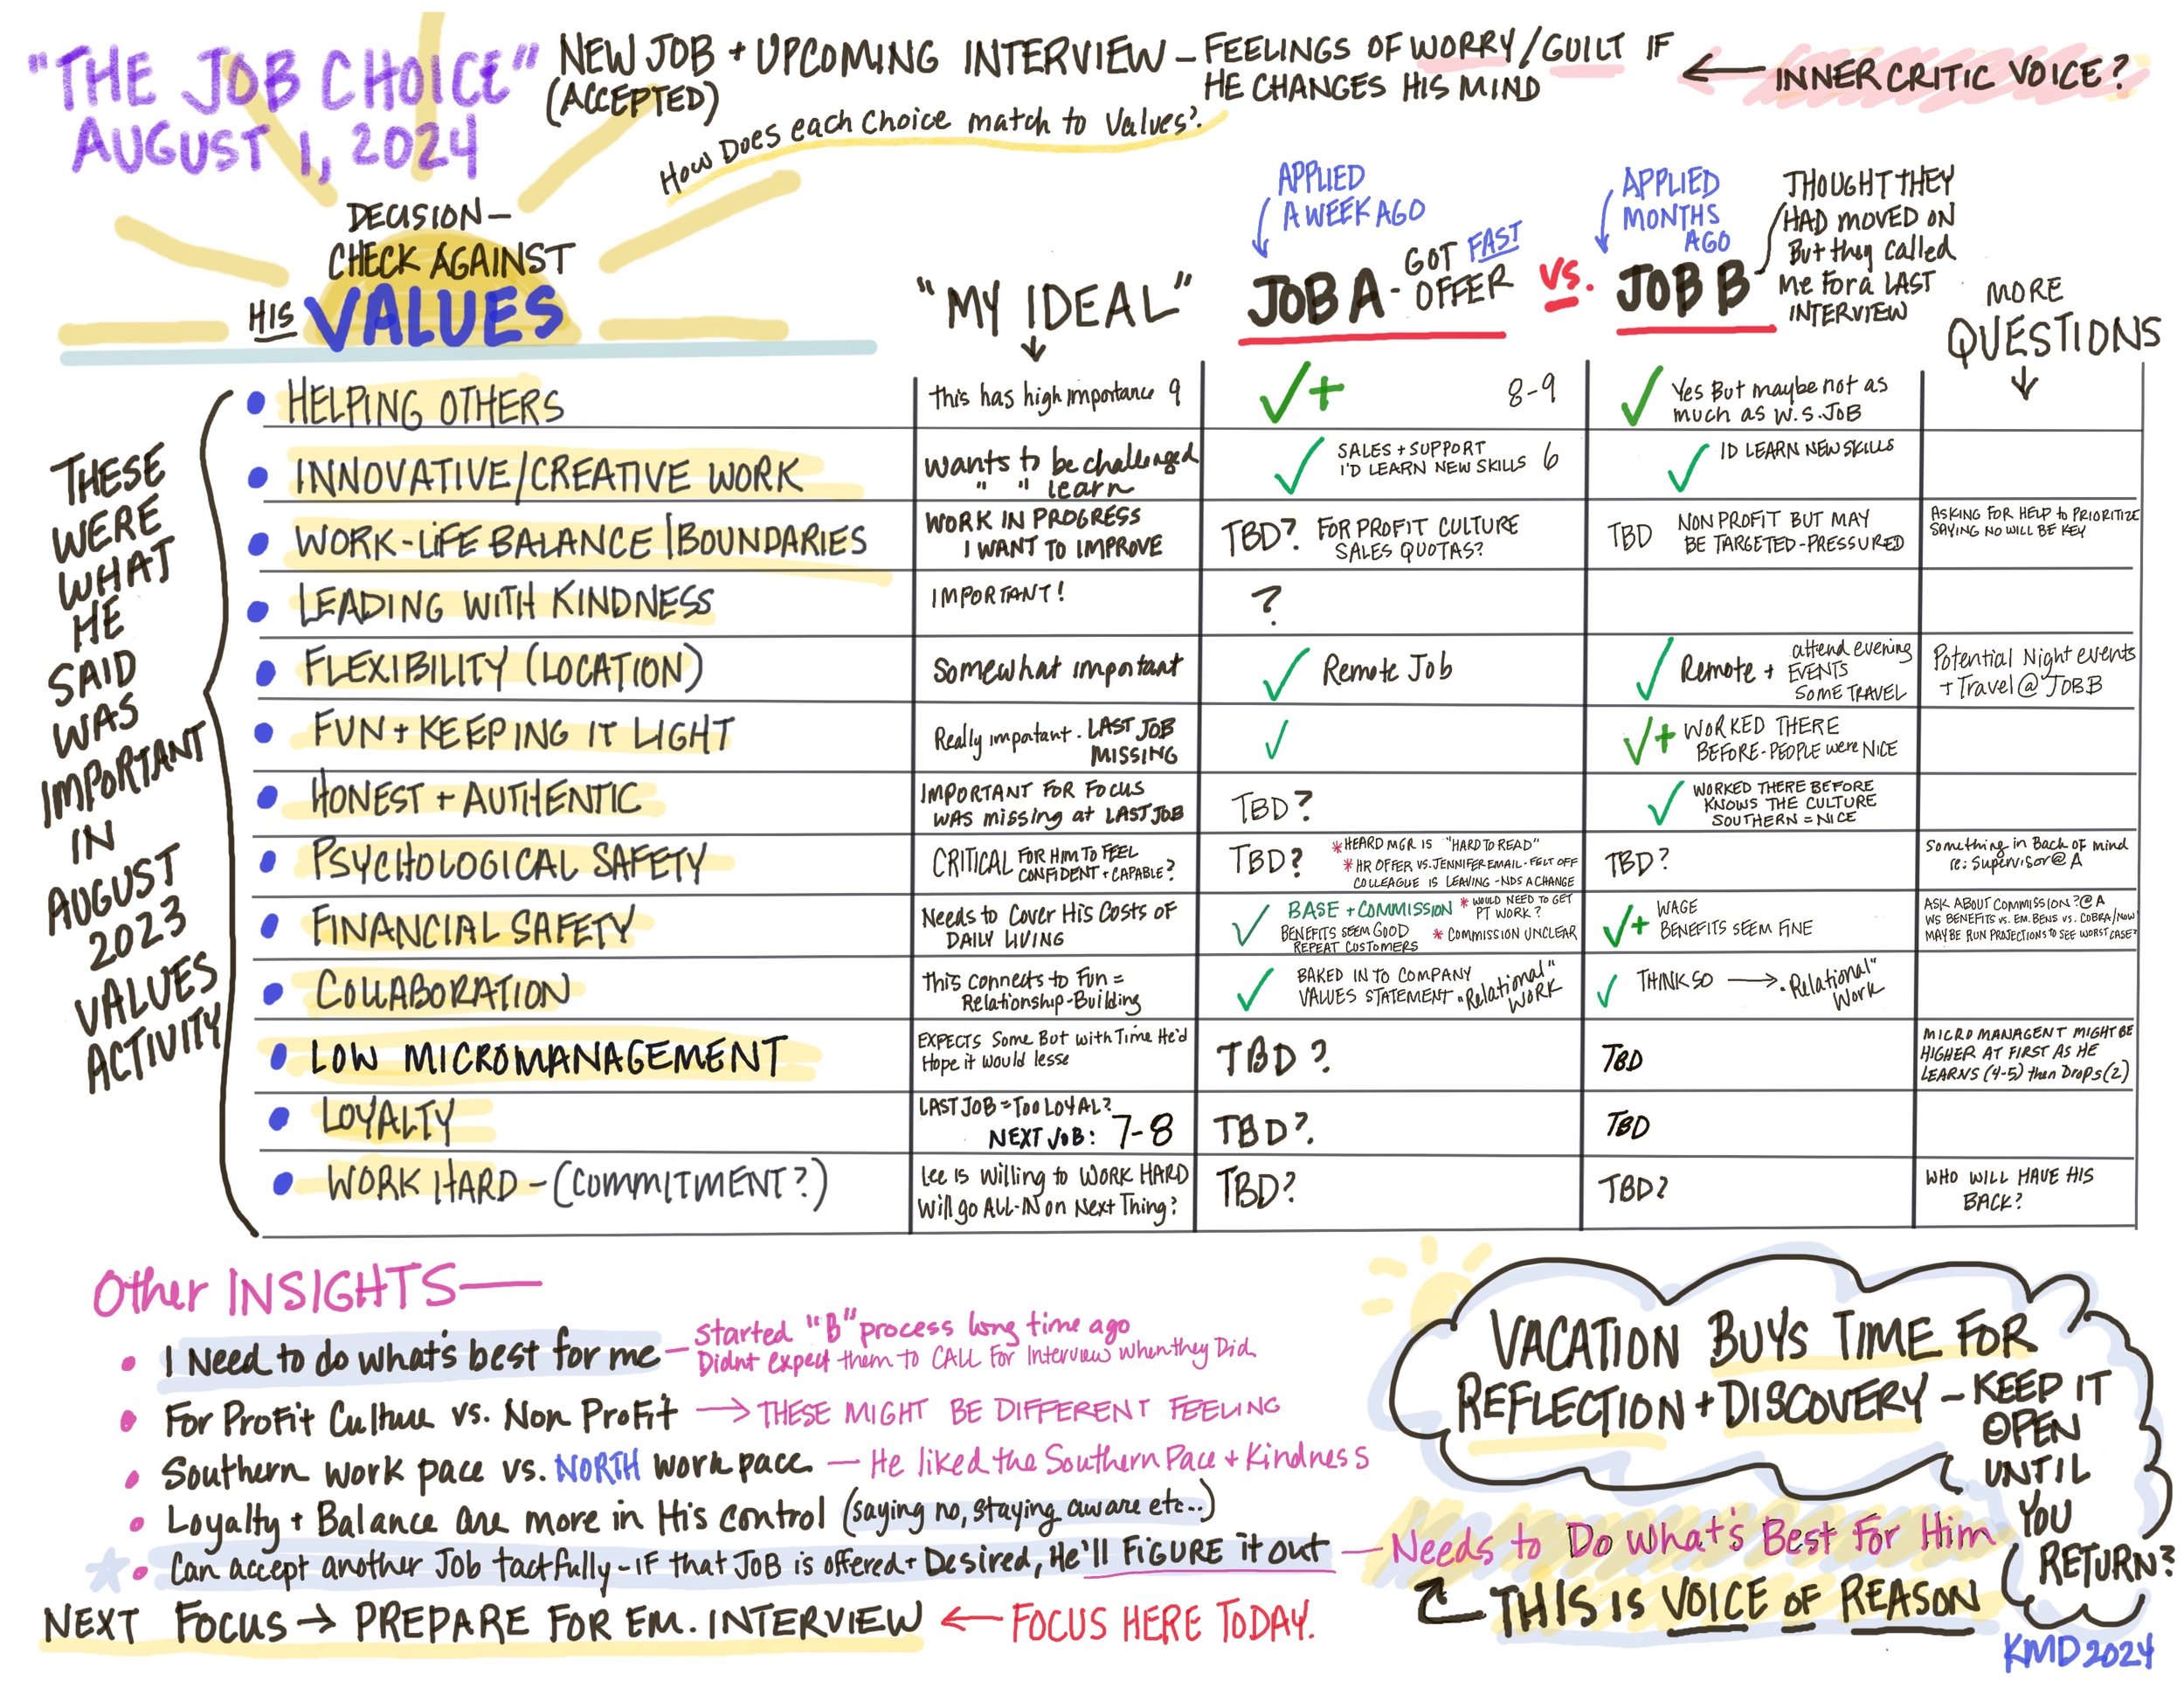 "THE JOB CHOICE"
AUGUST 1, 2024
NEW JOB + UPCOMING INTERVIEW - FEELINGS OF WORRY/GUILT IF
(ACCEPTED)
HE CHANGES HIS MIND
← INNER CRITIC VOICE?
How Does each Choice match to Values?
DECISION -
CHECK AGAINST
HIS VALUES
"MY IDEAL"
APPLIED
A WEEK AGO
JOB A - GOT FAST
OFFER
VS.
APPLIED
MONTHS
AGO
JOB B
THOUGHT THEY
HAD MOVED ON
But they called
Me For a LAST
INTERVIEW
MORE
QUESTIONS
THESE
WERE
WHAT
HE
SAID
WAS
IMPORTANT
IN
AUGUST
2023
VALUES
ACTIVITY
• HELPING OTHERS
this has high importance 9
✓+ 8-9
✓ Yes But maybe not as
much as W.S. JOB
• INNOVATIVE/CREATIVE WORK
wants to be challenged
" " learn
✓ SALES + SUPPORT
I'D LEARN NEW SKILLS 6
✓ ID LEARN NEW SKILLS
• WORK-LIFE BALANCE | BOUNDARIES
WORK IN PROGRESS
I WANT TO IMPROVE
TBD? FOR PROFIT CULTURE
SALES QUOTAS?
TBD NON PROFIT BUT MAY
BE TARGETED-PRESSURED
ASKING FOR HELP to PRIORITIZE
SAYING NO WILL BE KEY
• LEADING WITH KINDNESS
IMPORTANT!
?
• FLEXIBILITY (LOCATION)
Somewhat important
✓ Remote Job
✓ Remote + attend evening
EVENTS
SOME TRAVEL
Potential Night events
+ Travel @ JOB B
• FUN + KEEPING IT LIGHT
Really impatant. LAST JOB
MISSING
✓
✓+ WORKED THERE
BEFORE-PEOPLE were NICE
• HONEST + AUTHENTIC
IMPORTANT FOR FOCUS
WAS missing at LAST JOB
TBD?
✓ WORKED THERE BEFORE
KNOWS THE CULTURE
SOUTHERN = NICE
• PSYCHOLOGICAL SAFETY
CRITICAL FOR HIM TO FEEL
CONFIDENT + CAPABLE?
TBD? *HEARD MGR IS "HARD TO READ"
*HR OFFER VS. JENNIFER EMAIL - FELT OFF
COLLEAGUE IS LEAVING - NDS A CHANGE
TBD?
Something in Back of mind
re: Supervisor @ A
• FINANCIAL SAFETY
Needs to Cover His Costs of
DAILY LIVING
✓ BASE + COMMISSION * WOULD NEED TO GET
PT WORK?
BENEFITS SEEM GOOD * COMMISSION UNCLEAR
REPEAT CUSTOMERS
✓+ WAGE
BENEFITS SEEM FINE
ASK ABOUT COMMISSION? @ A
WS BENEFITS vs. EM. BENS vs. COBRA/NOW
MAYBE RUN PROJECTIONS TO SEE WORST CASE?
• COLLABORATION
This connects to Fun =
Relationship-Building
✓ BAKED IN TO COMPANY
VALUES STATEMENT "Relational"
WORK
✓ THINK SO → "Relational"
Work
• LOW MICROMANAGEMENT
EXPECTS Some But with Time He'd
Hope it would lesse
TBD?
TBD
MICRO MANAGENT MIGHT BE
HIGHER AT FIRST AS HE
LEARNS (4-5) then Drops (2)
• LOYALTY
LAST JOB = TOO LOYAL?
NEXT JOB: 7-8
TBD?
TBD
• WORK HARD - (COMMITMENT?)
Lee is willing to WORK HARD
Will go ALL-IN on Next Thing?
TBD?
TBD?
WHO WILL HAVE HIS
BACK?
Other INSIGHTS —
• I Need to do what's best for me - Started "B" process long time ago
Didnt expect them to CALL For Interview when they Did.
• For Profit Culture vs. Non Profit → THESE MIGHT BE DIFFERENT FEELING
• Southern work pace vs. NORTH work pace. — He liked the Southern Pace + Kindness
• Loyalty + Balance are more in His control (saying no, staying aware etc..)
• Can accept another Job tactfully - IF that JOB is offered + Desired, He'll FIGURE it out — Needs to Do What's Best For Him
NEXT FOCUS → PREPARE FOR EM. INTERVIEW ← FOCUS HERE TODAY.
VACATION BUYS TIME FOR
REFLECTION + DISCOVERY - KEEP IT
OPEN
UNTIL
YOU
RETURN?
THIS IS VOICE OF REASON
KMD 2024